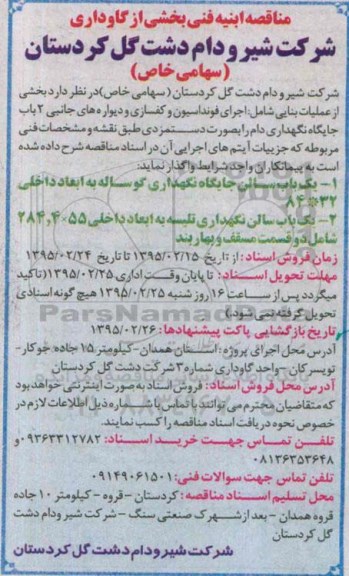 مناقصه ابنیه فنی بخشی از گاوداری
شرکت شیر و دام دشت گل کردستان
(سهامی خاص)
شرکت شیر و دام دشت گل کردستان (سهامی خاص) در نظر دارد بخشی
از عملیات بنایی شامل: اجرای فونداسیون و کفسازی و دیواره های جانبی ۲ باب
جایگاه نگهداری دام را بصورت دستمزدی طبق نقشه و مشخصات فنی
مربوطه که جزییات آیتم های اجرایی آن در اسناد مناقصه شرح داده شده
است به پیمانکاران واجد شرایط واگذار نماید:
۱- یک باب سالن جایگاه نگهداری گوساله به ابعاد داخلی
۳۲*۸۴
۲- یک باب سالن نگهداری تلیسه به ابعاد داخلی ۵۵*۲۸۴,۴
شامل دو قسمت مسقف و بهاربند
زمان فروش اسناد: از تاریخ ۱۳۹۵/۰۲/۱۵ تا تاریخ ۱۳۹۵/۰۲/۲۴
مهلت تحویل اسناد: تا پایان وقت اداری ۱۳۹۵/۰۲/۲۵ (تاکید
میگردد پس از ساعت ۱۶ روز شنبه ۱۳۹۵/۰۲/۲۵ هیچ گونه اسنادی
تحویل گرفته نمی شود)
تاریخ بازگشایی پاکت پیشنهادها: ۱۳۹۵/۰۲/۲۶
آدرس محل اجرای پروژه: استان همدان- کیلومتر ۱۵ جاده جوکار-
تویسرکان - واحد گاوداری شماره ۳ شرکت دشت گل کردستان
آدرس محل فروش اسناد: فروش اسناد به صورت اینترنتی خواهد بود
که متقاضیان محترم می توانند با تماس با شماره ذیل اطلاعات لازم در
خصوص نحوه دریافت اسناد مناقصه را کسب نمایند.
تلفن تماس جهت خرید اسناد: ۰۹۳۶۳۳۱۲۷۸۲ و
۰۸۱۳۶۳۵۳۶۴۸
تلفن تماس جهت سوالات فنی: ۰۹۱۴۹۰۶۱۵۰۱
محل تسلیم اسناد مناقصه: کردستان - قروه - کیلومتر ۱۰ جاده
قروه همدان - بعد از شهرک صنعتی سنگ - شرکت شیر و دام دشت
گل کردستان
شرکت شیر و دام دشت گل کردستان